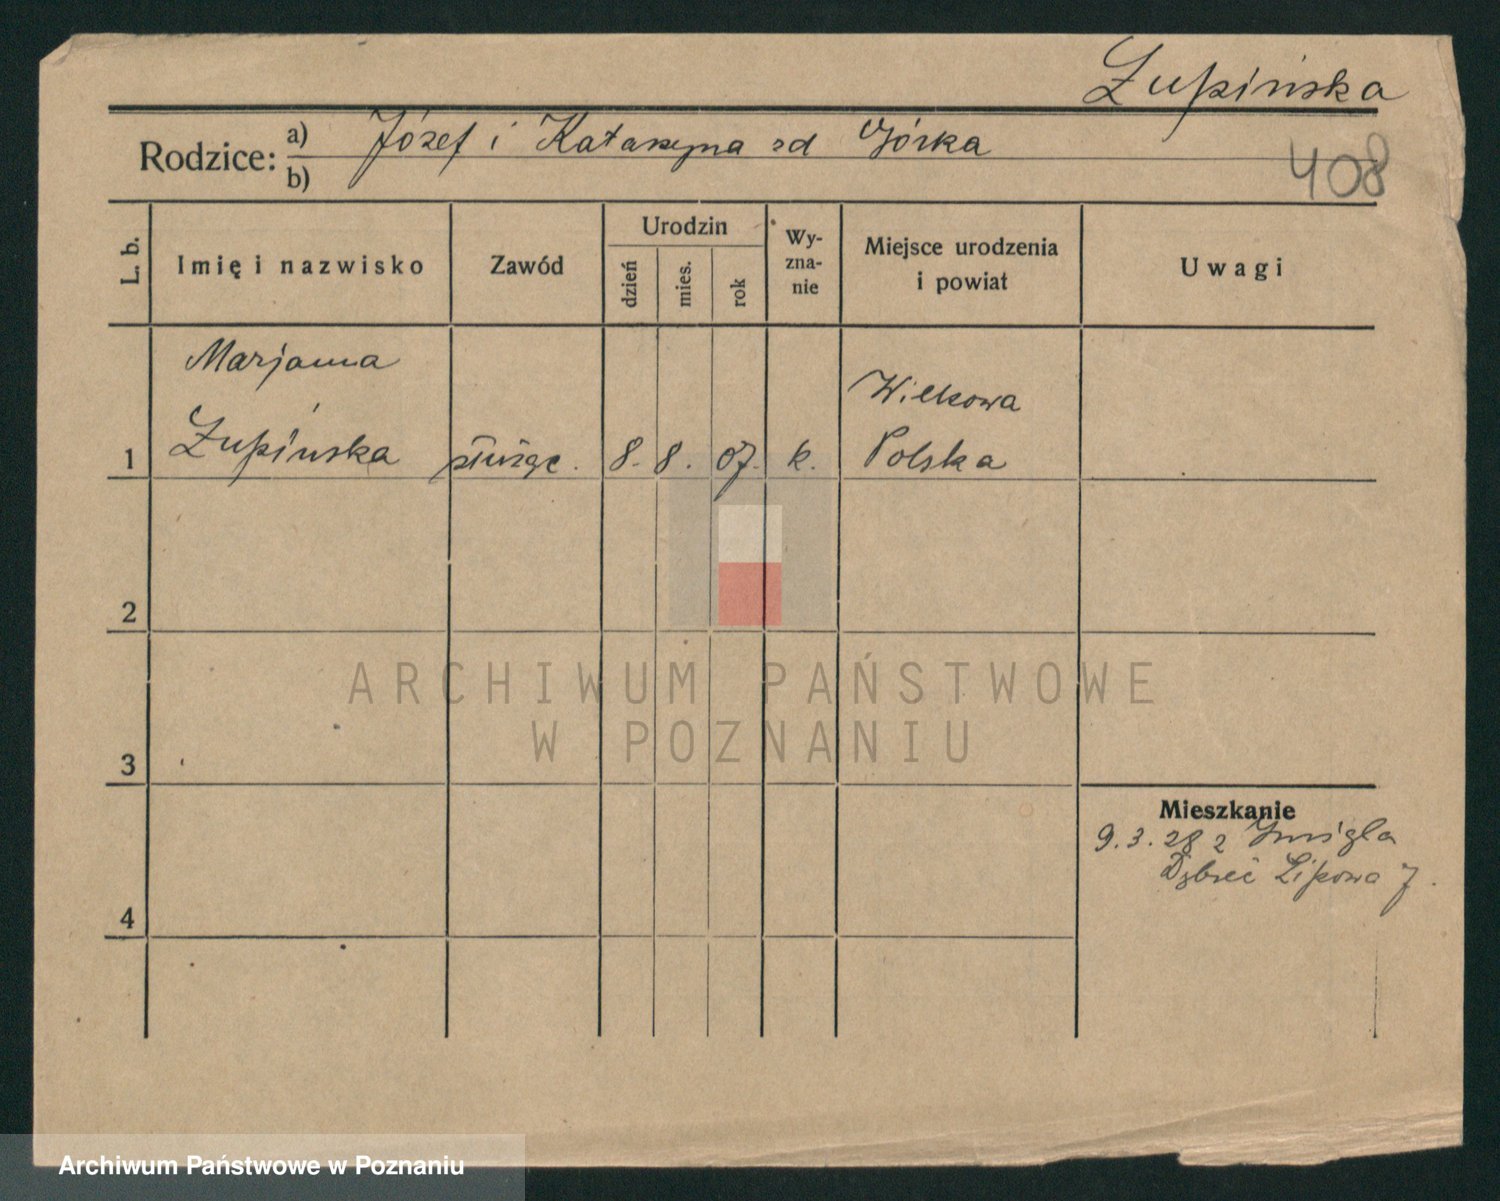 Żupińska
Rodzice: a) Józef i Katarzyna zd Górka
b)
408
L. b.
Imię i nazwisko
Zawód
Urodzin
dzień
mies.
rok
Wy-
zna-
nie
Miejsce urodzenia
i powiat
Uwagi
Marjanna
Wilkowa
1 Żupińska służąc. 8. 8. 07. k. Polska
2
3
4
Mieszkanie
9.3.28 z Śmigla
Lipowa 7.
ARCHIWUM PAŃSTWOWE
W POZNANIU
Archiwum Państwowe w Poznaniu